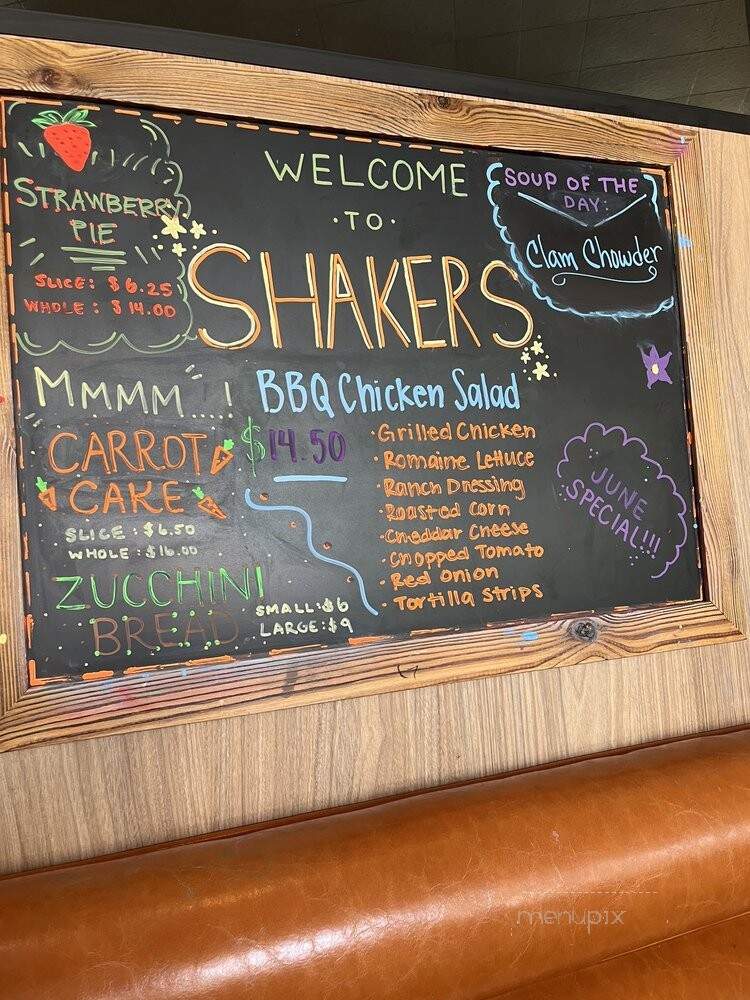 WELCOME
·TO·
SHAKERS
STRAWBERRY
PIE
SLICE: $6.25
WHOLE: $14.00
SOUP OF THE
DAY:
Clam Chowder
MMMM....!
CARROT
CAKE
SLICE: $6.50
WHOLE: $16.00
ZUCCHINI
BREAD
SMALL: $6
LARGE: $9
BBQ Chicken Salad
$14.50
·Grilled Chicken
·Romaine Lettuce
·Ranch Dressing
·Roasted Corn
·Cheddar Cheese
·Chopped Tomato
·Red Onion
·Tortilla Strips
JUNE
SPECIAL!!!
menupix